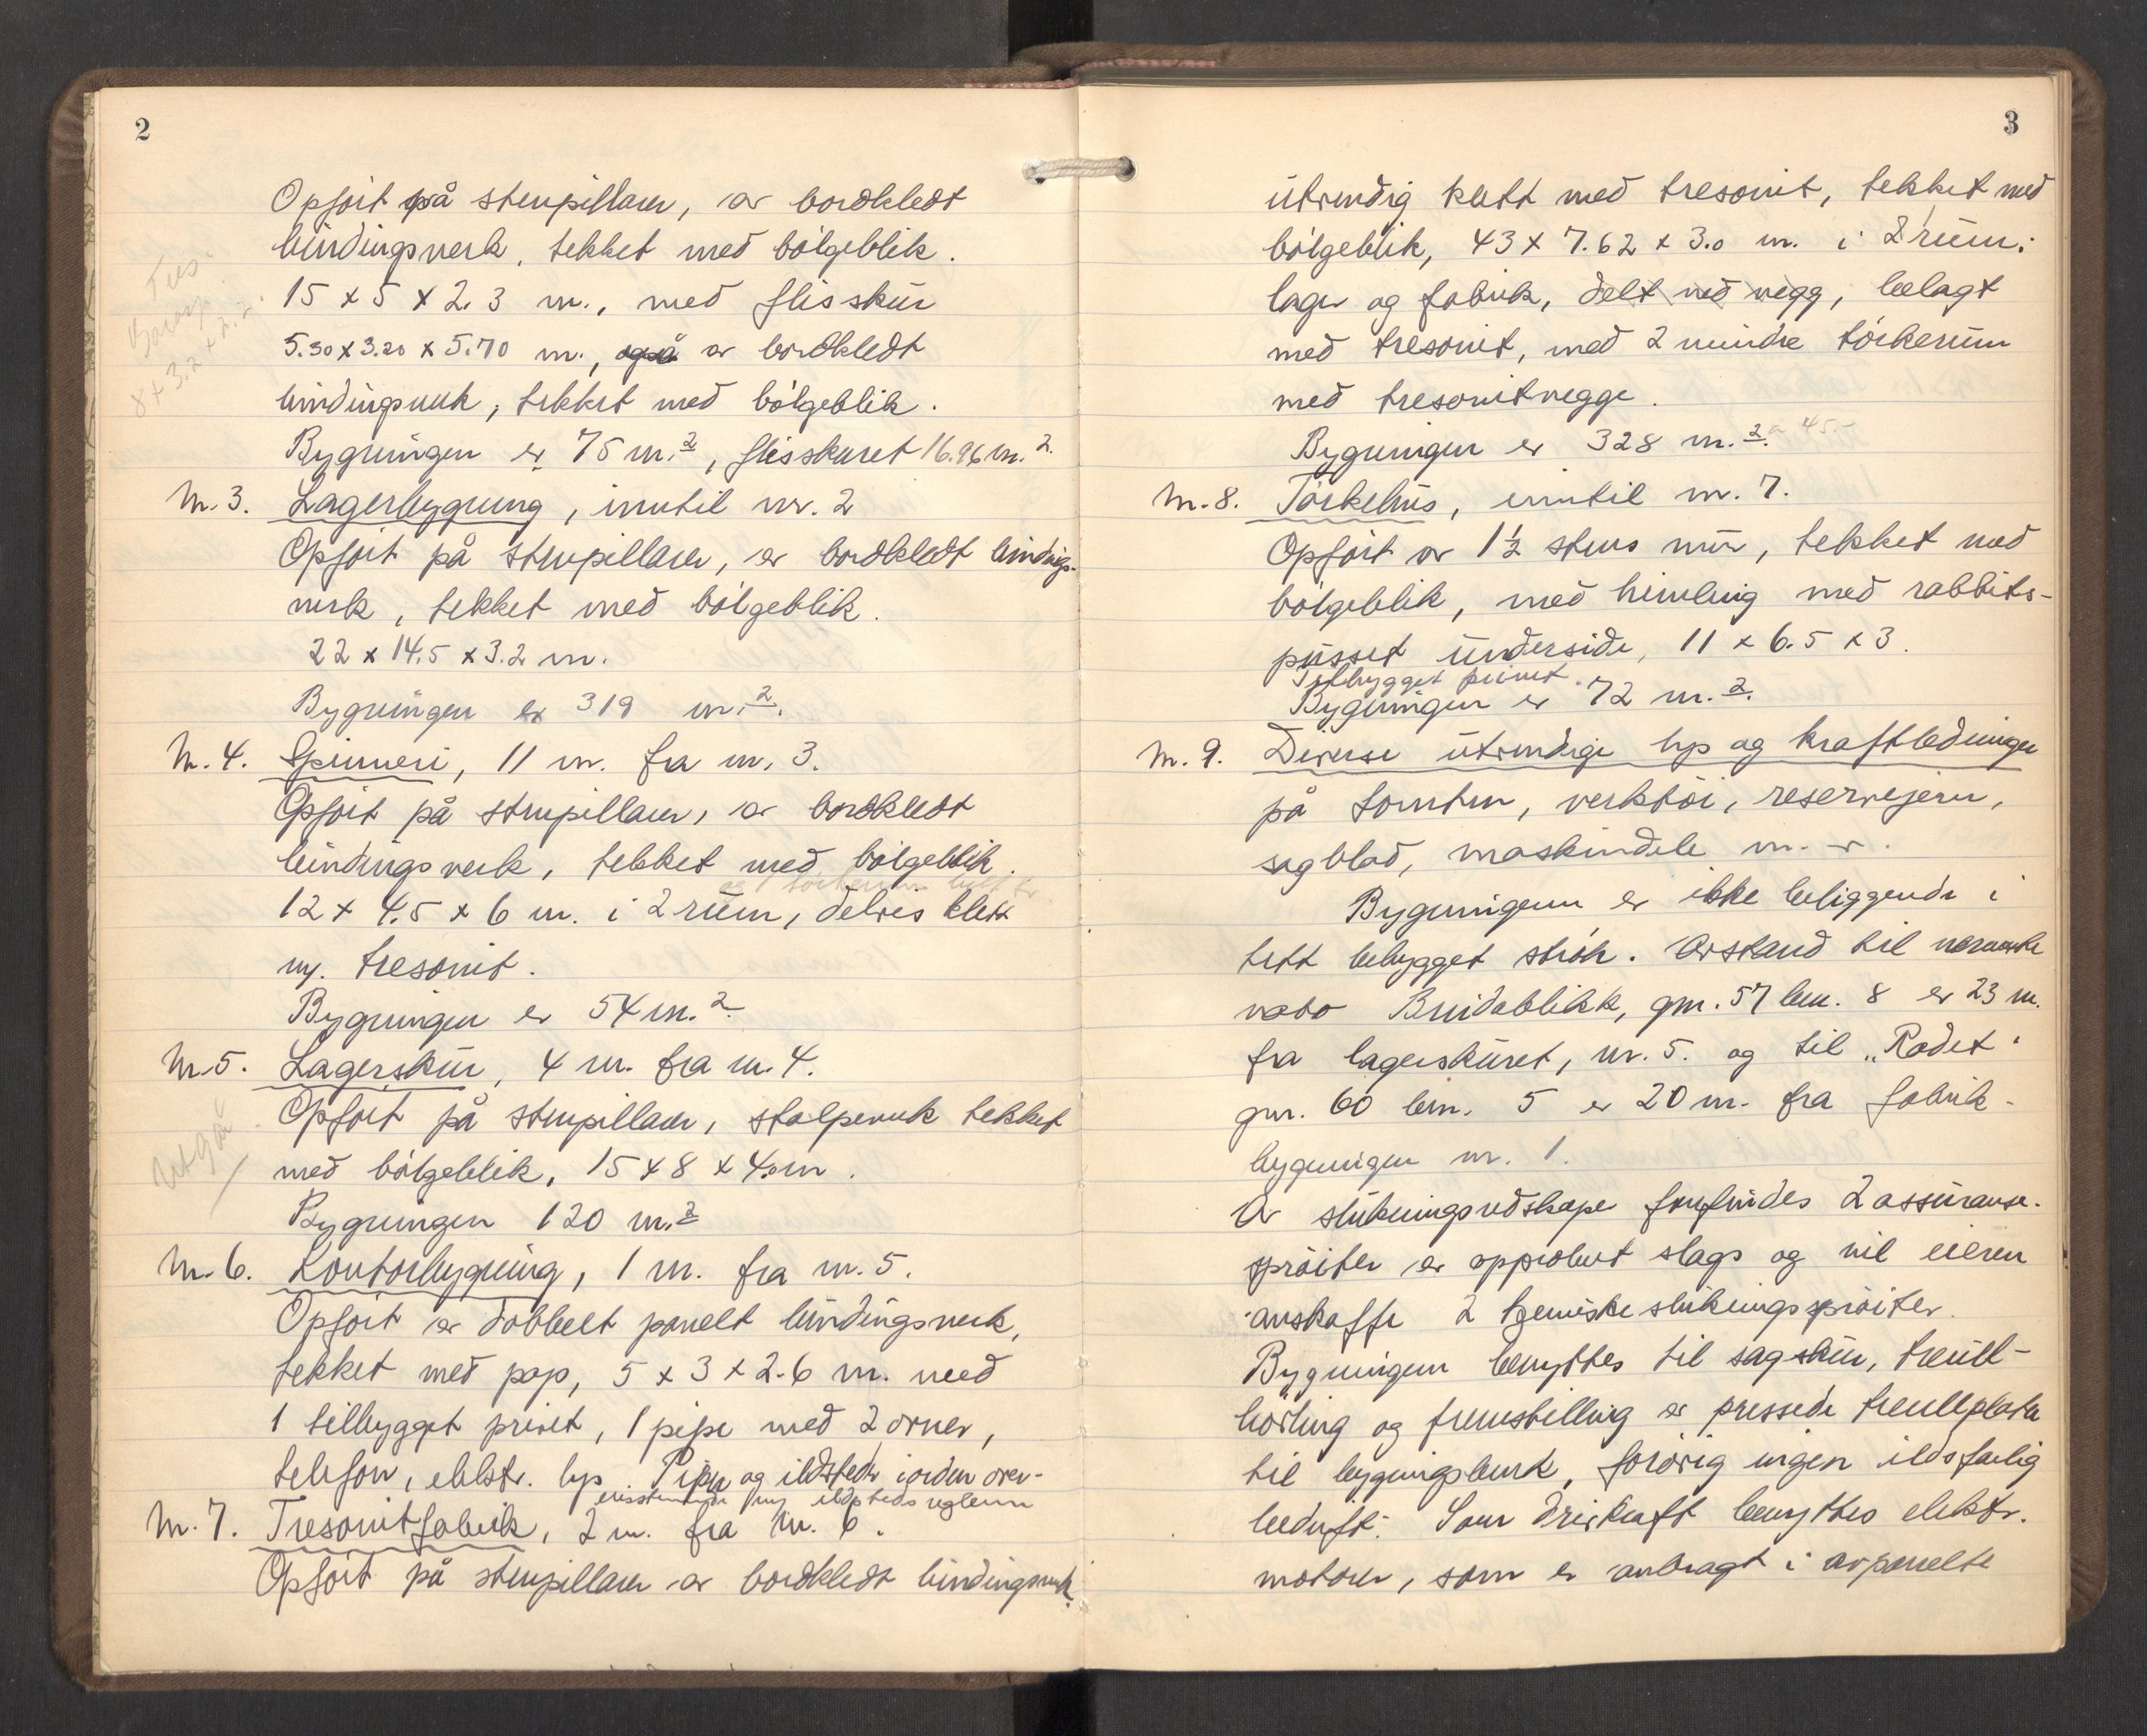 2
Opført på stenpillarer, av bordkledt
bindingsverk, tekket med bølgeblik.
15 x 5 x 2.3 m., med flisskur
5.30 x 3.20 x 5.70 m., også av bordkledt
bindingsverk, tekket med bølgeblik.
8 x 3.2 x 2.2.
Bygningen er 75 m.², flisskuret 16.96 m.²
Nr. 3. Lagerbygning, inntil nr. 2
Opført på stenpillarer, av bordkledt bindings-
verk, tekket med bølgeblik.
22 x 14.5 x 3.2 m.
Bygningen er 319 m.².
Nr. 4. Spinneri, 11 m. fra nr. 3.
Opført på stenpillarer, av bordkledt
bindingsverk, tekket med bølgeblik.
12 x 4.5 x 6 m. i 2 rum, delvis klett
m. tresonit.
Bygningen er 54 m.²
Nr. 5. Lagerskur, 4 m. fra nr. 4.
Utgår
Opført på stenpillarer, stolpeverk tekket
med bølgeblik, 15 x 8 x 4.0 m.
Bygningen 120 m.²
Nr. 6. Kontorbygning, 1 m. fra nr. 5.
Opført av dobbelt panelt bindingsverk,
tekket med pap, 5 x 3 x 2.6 m. med
1 tilbygget privet, 1 pipe med 2 ovner,
telefon, elektr. lys. Piper og ildsteder i orden over-
ensstemmende m/ ildstedsreglene
Nr. 7. Tresonitfabrik, 2 m. fra nr. 6.
Opført på stenpillarer av bordkledt bindingsverk,
3
utvendig klett med tresonit, tekket med
bølgeblik, 43 x 7.62 x 3.0 m. i 2 rum:
lager og fabrik, delt ved vegg, belagt
med tresonit, med 2 mindre tørkerum
med tresonitvegge.
Bygningen er 328 m.² a 45.-
Nr. 8. Tørkehus, inntil nr. 7.
Opført av 1½ stens mur, tekket med
bølgeblik, med himling med rabbits-
pusset underside, 11 x 6.5 x 3.
Tilbygget privet.
Bygningen er 72 m.².
Nr. 9. Diverse utvendige lys og kraftledninger
på tomten, verktøi, reservejern,
sagblad, maskindele m. v.
Bygningene er ikke beliggende i
tett bebygget strøk. Avstand til nærmeste
nabo Breidablikk, gnr. 57 bnr. 8 er 23 m.
fra lagerskuret, nr. 5. og til „Rodet"
gnr. 60 bnr. 5 er 20 m. fra fabrik-
bygningen nr. 1.
Av slukningsredskaper forefindes 2 assuranse-
sprøiter av approbert slags og vil eieren
anskaffe 2 kjemiske slukningssprøiter.
Bygningene benyttes til sagskur, treull-
høvling og fremstilling av pressede treullplater
til bygningsbruk, forøvrig ingen ildsfarlig
bedrift. Som drivkraft benyttes elektr.
motorer, som er anbragt i avpanelte